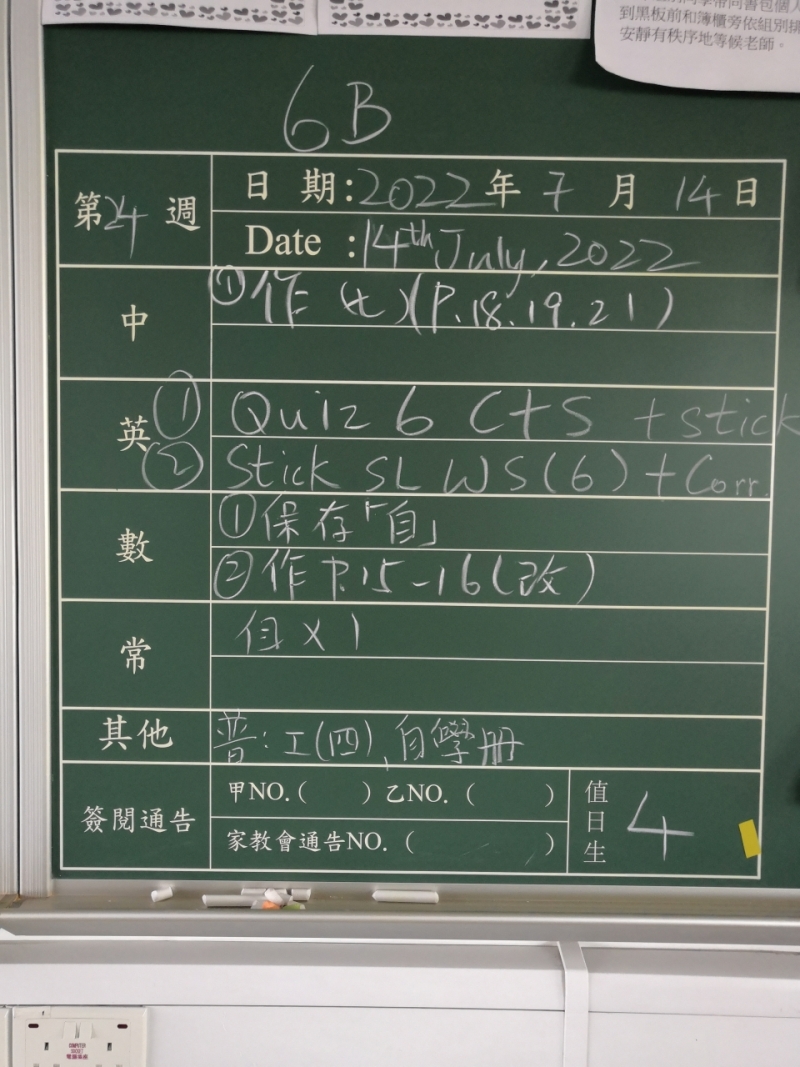 到黑板前和簿櫃旁依組別排
安靜有秩序地等候老師。
6B
第24週
日 期:2022年 7 月 14 日
Date :14th July, 2022
中
①作(七)(P.18.19.21)
英
① Quiz 6 C+S + stick
② Stick SL WS(6) + Corr.
數
①保存「自」
②作P.15-16(改)
常
值 X 1
其他
普: 工(四), 自學冊
簽閱通告
甲NO.( ) 乙NO. ( )
家教會通告NO. ( )
值日生
4
COMPUTER
SOCKET
電腦插座